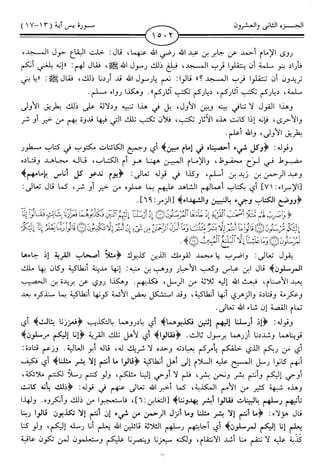 الجزء الثانى والعشرون
١٥٠٢
سورة يس آية (١٣-١٧)
روى الإمام أحمد عن جابر بن عبد الله رضي الله عنهما، قال: خلت البقاع حول المسجد،
فأراد بنو سلمة أن ينتقلوا قرب المسجد، فبلغ ذلك رسول الله ﷺ، فقال لهم: «إنه بلغني أنكم
تريدون أن تنتقلوا قرب المسجد؟» قالوا: نعم يارسول الله قد أردنا ذلك، فقال ﷺ: «يا بني
سلمة، دياركم تكتب آثاركم، دياركم تكتب آثاركم». وهكذا رواه مسلم.
وهذا القول لا تنافي بينه وبين الأول، بل في هذا تنبيه ودلالة على ذلك بطريق الأولى
والأحرى، فإنه إذا كانت هذه الآثار تكتب، فلأن تكتب تلك التي فيها قدوة بهم من خير أو شر
بطريق الأولى، والله أعلم.
وقوله: ﴿وكل شيء أحصيناه في إمام مبين﴾ أي وجميع الكائنات مكتوب في كتاب مسطور
مضبوط في لوح محفوظ، والإمام المبين ههنا هو أم الكتاب، قاله مجاهد وقتادة
وعبد الرحمن بن زيد بن أسلم، وكذا في قوله تعالى: ﴿يوم ندعو كل أناس بإمامهم﴾
[الإسراء: ٧١] أي بكتاب أعمالهم الشاهد عليهم بما عملوه من خير أو شر، كما قال تعالى:
﴿ووضع الكتاب وجيء بالنبيين والشهداء﴾ [الزمر: ٦٩].
يقول تعالى: واضرب يا محمد لقومك الذين كذبوك ﴿مثلاً أصحاب القرية إذ جاءها
المرسلون﴾ قال ابن عباس وكعب الأحبار ووهب بن منبه: إنها مدينة أنطاكية وكان بها ملك
يعبد الأصنام، فبعث الله إليه ثلاثة من الرسل، فكذبهم. وهكذا روي عن بريدة بن الحصيب
وعكرمة وقتادة والزهري أنها أنطاكية، وقد استشكل بعض الأئمة كونها أنطاكية بما سنذكره بعد
تمام القصة إن شاء الله تعالى.
وقوله: ﴿إذ أرسلنا إليهم اثنين فكذبوهما﴾ أي بادروهما بالتكذيب ﴿فعززنا بثالث﴾ أي
قويناهما وشددنا أزرهما برسول ثالث. ﴿فقالوا﴾ أي لأهل تلك القرية ﴿إنا إليكم مرسلون﴾
أي من ربكم الذي خلقكم يأمركم بعبادته وحده لا شريك له، قاله أبو العالية. وزعم قتادة:
أنهم كانوا رسل المسيح عليه السلام إلى أهل أنطاكية ﴿قالوا ما أنتم إلا بشر مثلنا﴾ أي فكيف
أوحي إليكم وأنتم بشر ونحن بشر، فلم لا أوحي إلينا مثلكم، ولو كنتم رسلاً لكنتم ملائكة،
وهذه شبهة كثير من الأمم المكذبة، كما أخبر الله تعالى عنهم في قوله: ﴿ذلك بأنه كانت
تأتيهم رسلهم بالبينات فقالوا أبشر يهدوننا﴾ [التغابن: ٦]، فاستعجبوا من ذلك وأنكروه. ولهذا
قال هؤلاء: ﴿ما أنتم إلا بشر مثلنا وما أنزل الرحمن من شيء إن أنتم إلا تكذبون قالوا ربنا
يعلم إنا إليكم لمرسلون﴾ أي أجابتهم رسلهم الثلاثة قائلين الله يعلم أنا رسله إليكم، ولو كنا
كذبة عليه لا نتقم منا أشد الانتقام، ولكنه سيعزنا وينصرنا عليكم وستعلمون لمن تكون عاقبة